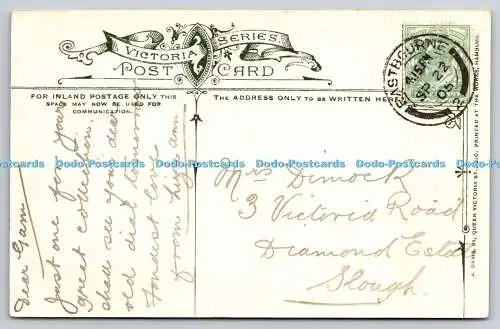 VICTORIA SERIES.
POST CARD
FOR INLAND POSTAGE ONLY THIS
SPACE MAY NOW BE USED FOR
COMMUNICATION.
THE ADDRESS ONLY TO BE WRITTEN HERE
EASTBOURNE
SP 22
05
Dear Gam
Just one for your
great collection.
shall see you dear
old dial tomorrow
Fondest love
from
Mrs Dimock
3 Victoria Road
Diamond Estd
Slough.
J. DAVIS, 91, QUEEN VICTORIA ST. PRINTED AT THE WORKS, HAMBURG.
Dodo-Postcards Dodo-Postcards Dodo-Postcards Dodo-Postcards Dodo-Postcards